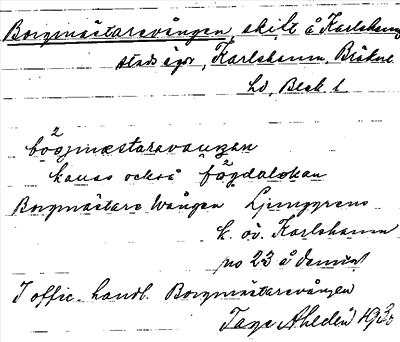 Borgmästarevången, skilt å Karlshamns
stads ägor, Karlshamn, Bräkne
hd, Blek. l.
bo²rjmestaravaŋən
kallas också fögdalyckan
Borgmästare Wången Ljunggrens
k. öv. Karlshamn
no 23 å
I offic. handl. Borgmästarevången
Tage Ahldén 1930